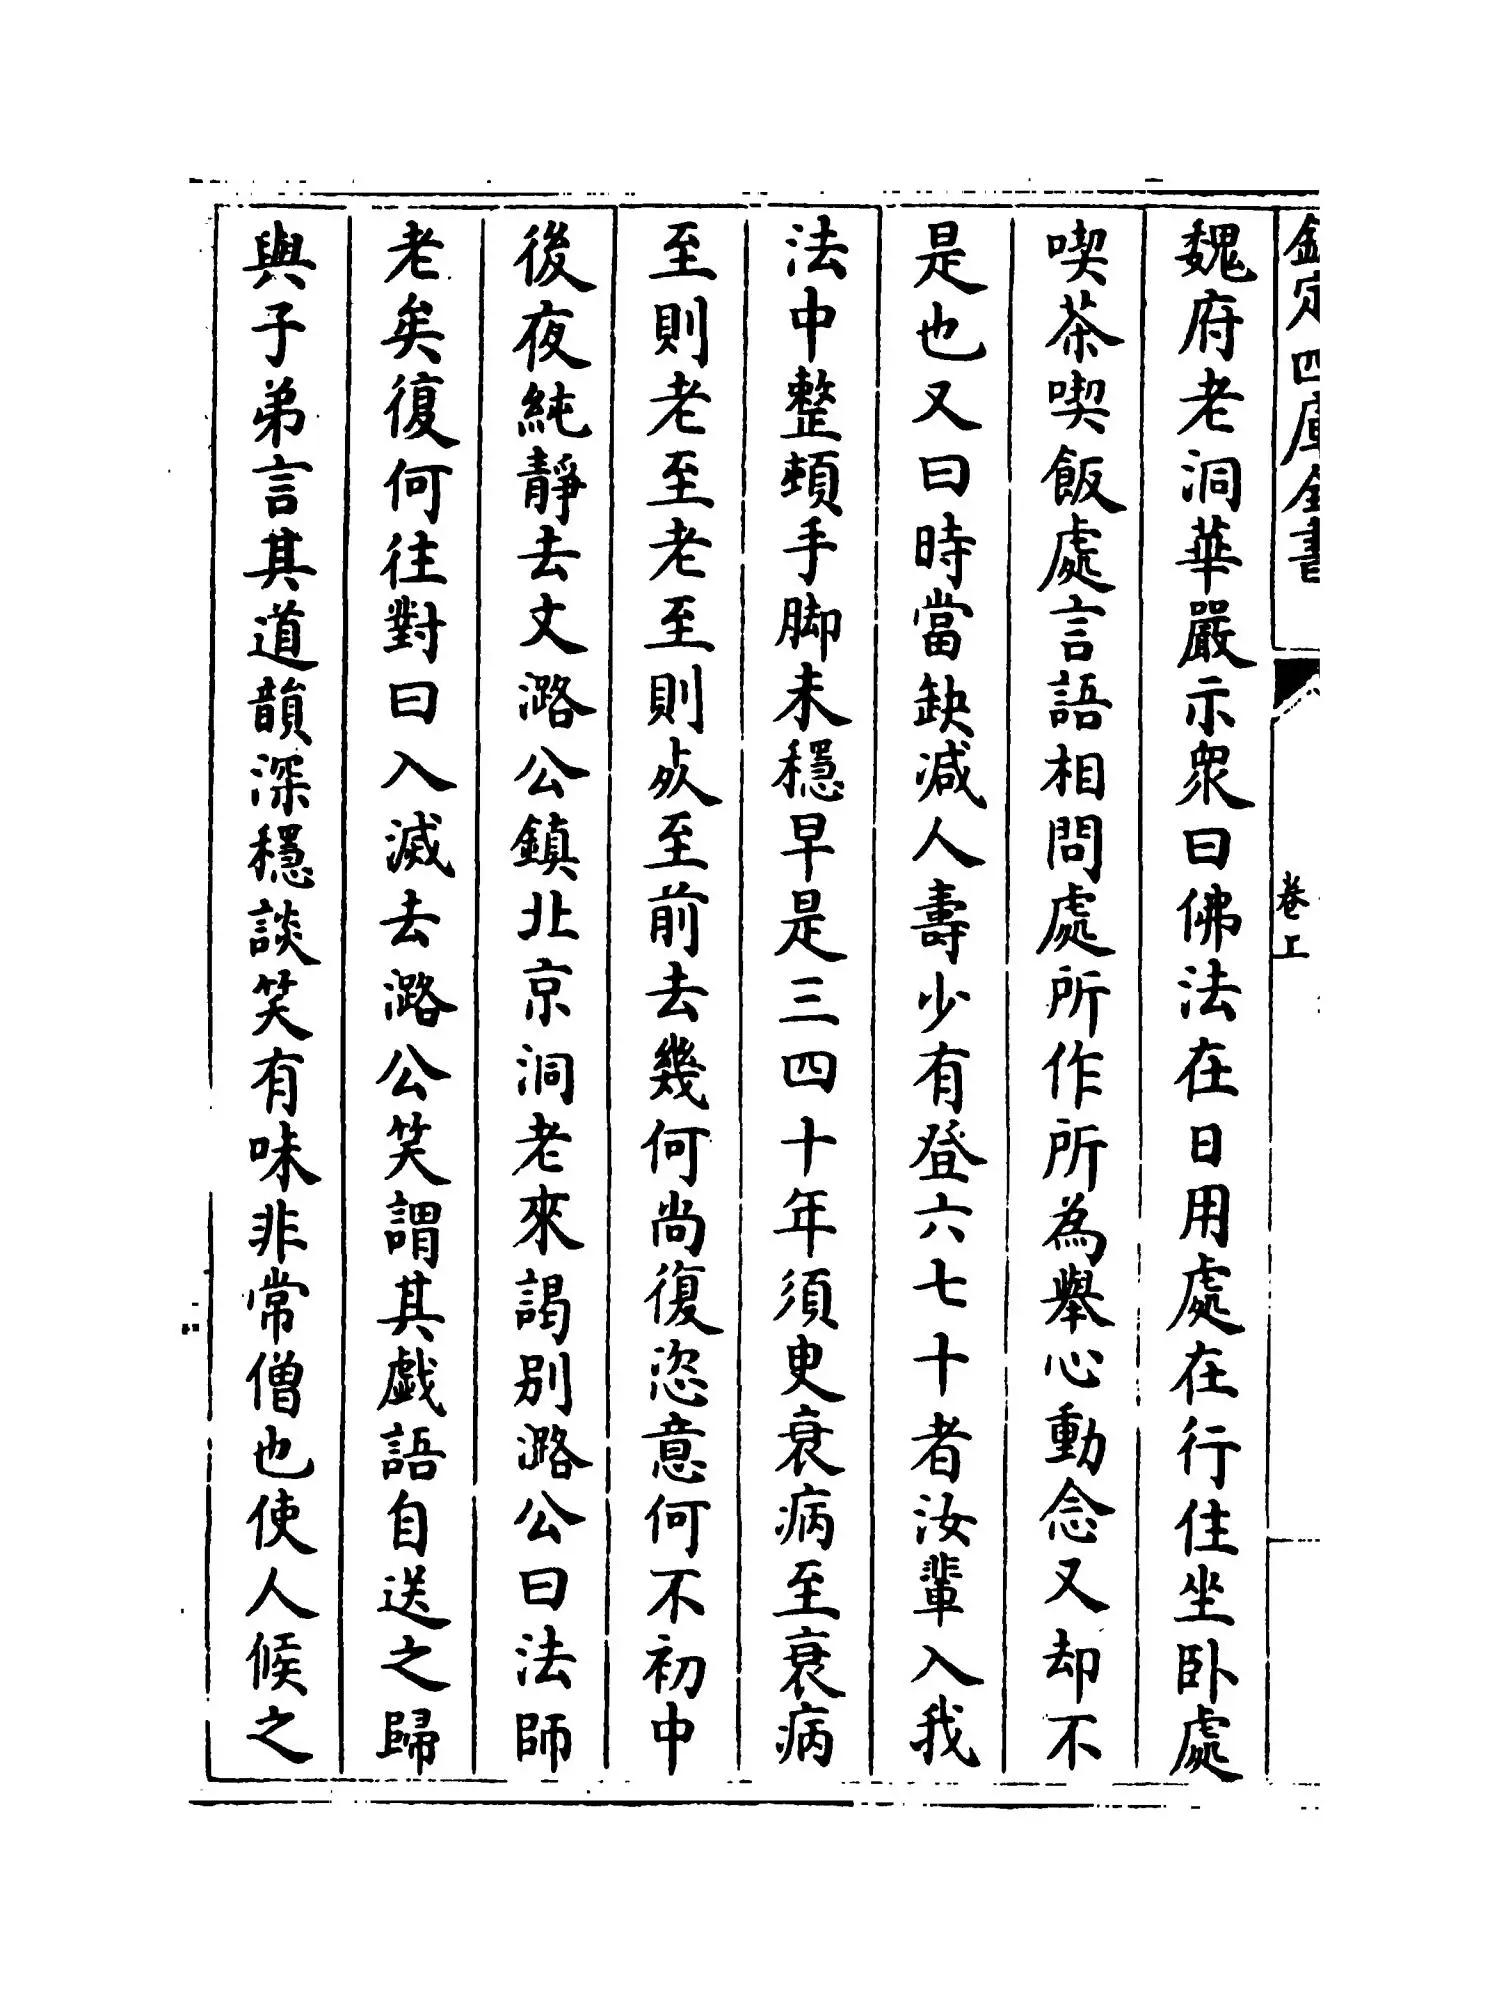 欽定四庫全書
卷上
魏府老洞華嚴示衆曰佛法在日用處在行住坐卧處
喫茶喫飯處言語相問處所作所為舉心動念又却不
是也又曰時當缺减人壽少有登六七十者汝輩入我
法中整頓手脚未穩早是三四十年須臾衰病至衰病
至則老至老至則死至前去幾何尚復恣意何不初中
後夜純靜去文潞公鎮北京洞老來謁别潞公曰法師
老矣復何往對曰入滅去潞公笑謂其戯語自送之歸
與子弟言其道韻深穩談笑有味非常僧也使人候之